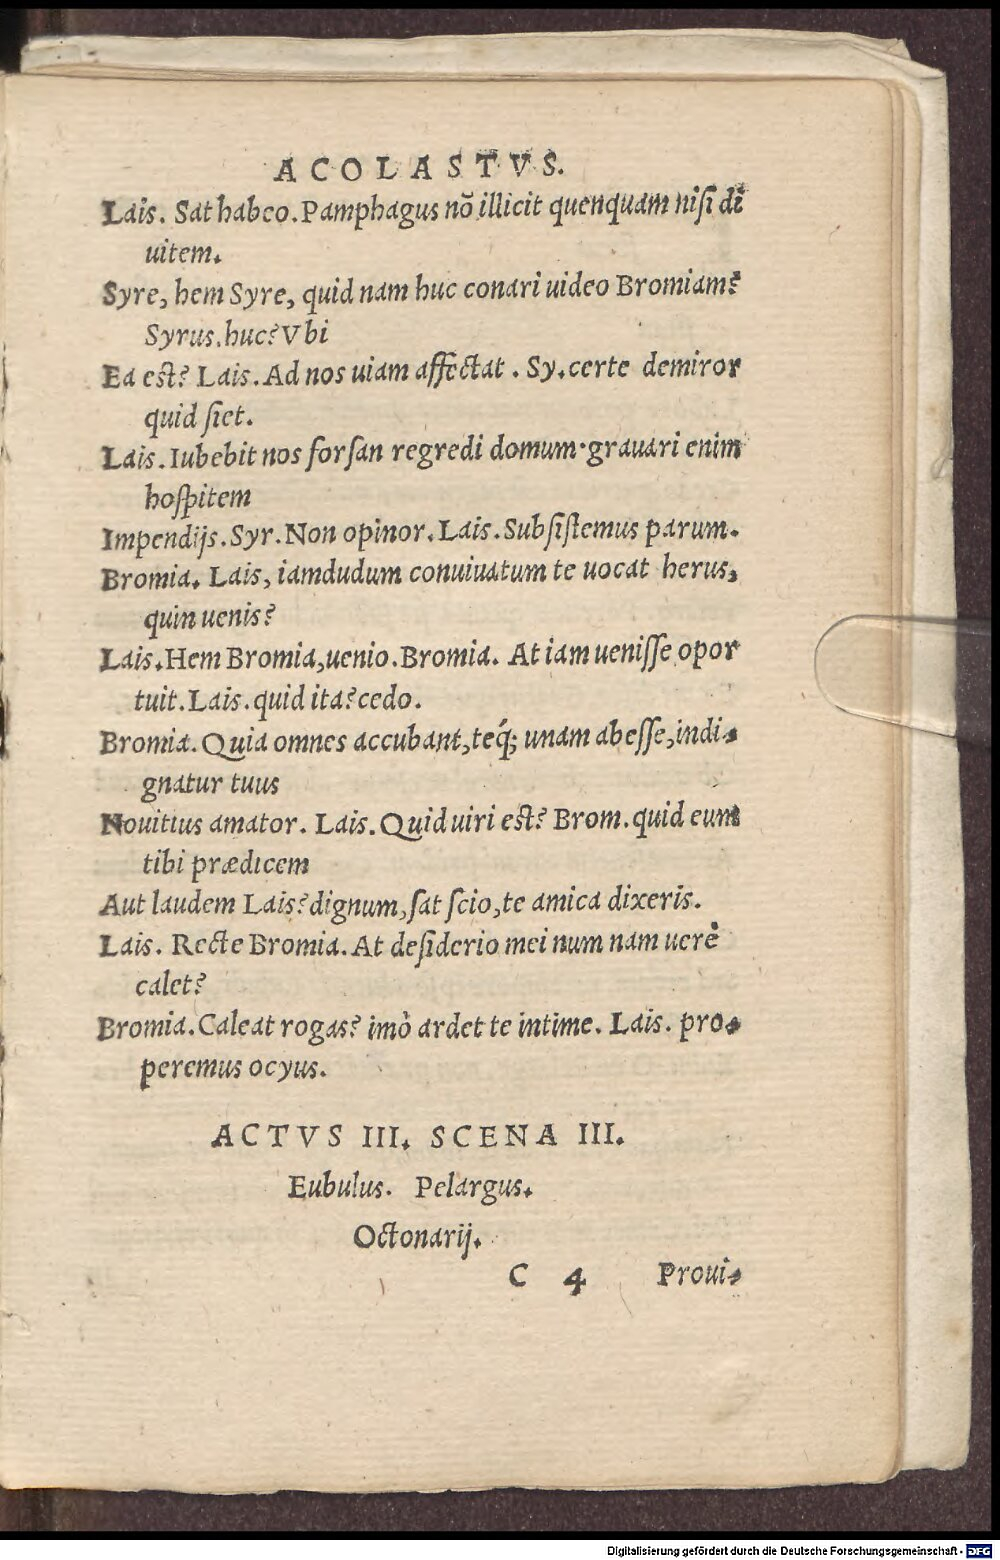 ACOLASTVS.
Lais. Sat habeo. Pamphagus nõ illicit quenquam nisi di
uitem.
Syre, hem Syre, quid nam huc conari uideo Bromiam?
Syrus. huc? Vbi
Ea est? Lais. Ad nos uiam affectat. Sy. certe demiror
quid siet.
Lais. Iubebit nos forsan regredi domum. grauari enim
hospitem
Impendijs. Syr. Non opinor. Lais. Subsistemus parum.
Bromia. Lais, iamdudum conuiuatum te uocat herus,
quin uenis?
Lais. Hem Bromia, uenio. Bromia. At iam uenisse opor
tuit. Lais. quid ita? cedo.
Bromia. Quia omnes accubant, teq́; unam abesse, indi-
gnatur tuus
Nouitius amator. Lais. Quid uiri est? Brom. quid eum
tibi prædicem
Aut laudem Lais? dignum, sat scio, te amica dixeris.
Lais. Recte Bromia. At desiderio mei num nam uerè
calet?
Bromia. Caleat rogas? imò ardet te intime. Lais. pro-
peremus ocyus.
ACTVS III. SCENA III.
Eubulus. Pelargus.
Octonarij.
C 4 Proui-
Digitalisierung gefördert durch die Deutsche Forschungsgemeinschaft - DFG